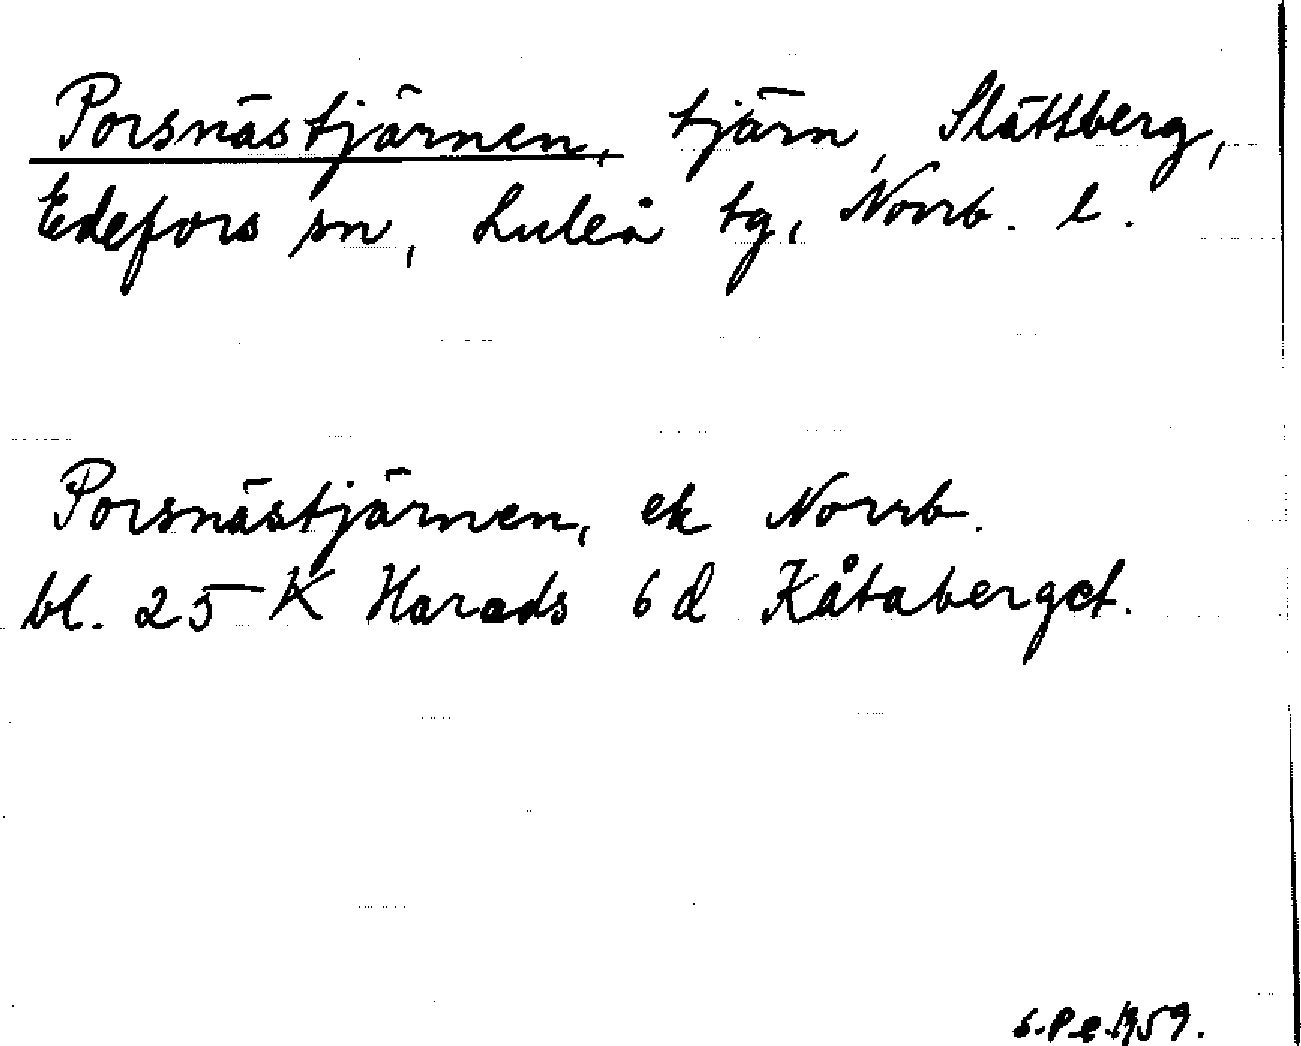 Porsnästjärnen, tjärn, Slättberg,
Edefors sn, Luleå tg, Norrb. l.
Porsnästjärnen, ek Norrb.
bl. 25 K Harads 6 d Kåtaberget.
S.Pe.1959.